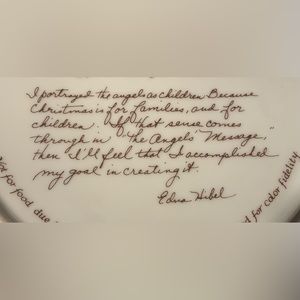 I portrayed the angels as children Because
Christmas is for families, and for
children. If that sense comes
through in "The Angels' Message,"
then I'll feel that I accomplished
my goal in creating it.
Edna Hibel
Not for food due
d for color fidelity